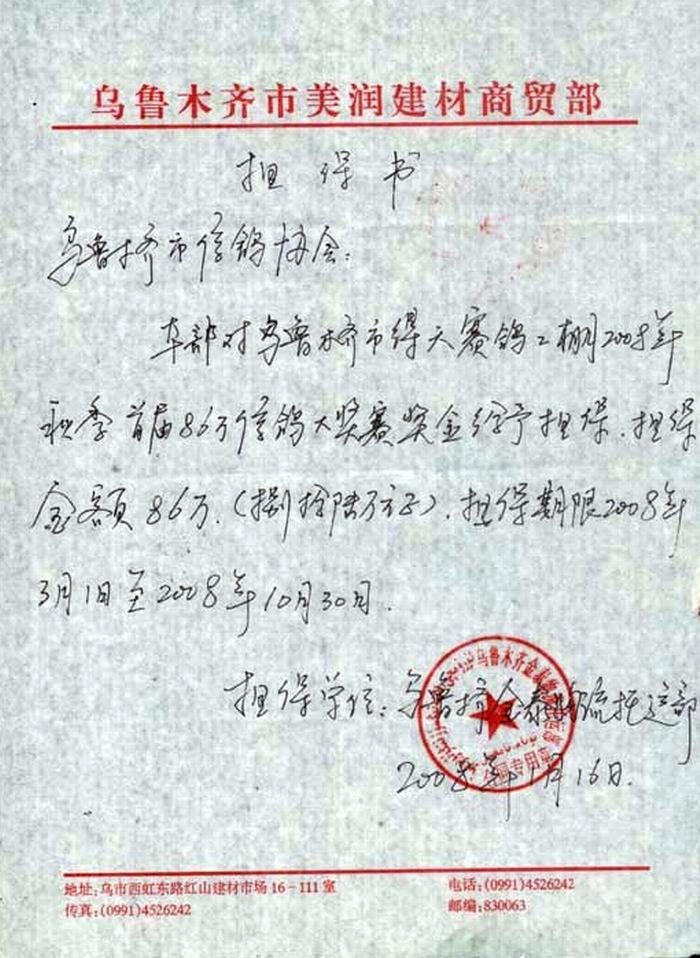 乌鲁木齐市美润建材商贸部
担保书
乌鲁木齐市信鸽协会:
本部对乌鲁木齐市得天赛鸽工棚2008年
秋季首届86万信鸽大奖赛奖金给予担保.担保
金额86万.(捌拾陆万正).担保期限2008年
3月1日至2008年10月30日.
担保单位:乌鲁木齐金泰物流托运部
2008年1月16日.
地址:乌市西虹东路红山建材市场16-111室
电话:(0991)4526242
传真:(0991)4526242
邮编:830063